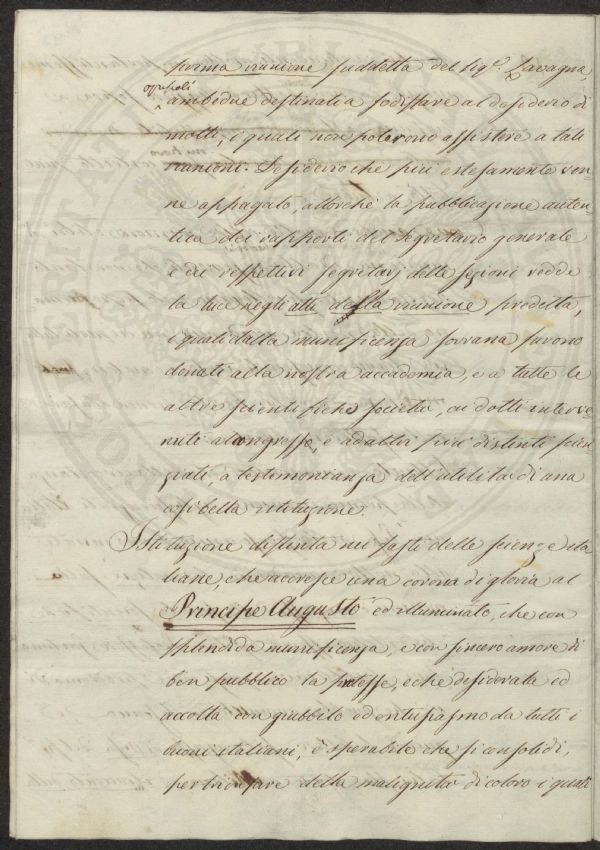 prima riunione suddetta del Sigr. Zavagna,
opuscoli
ambidue destinati a sodisfare al desiderio di
molti, i quali non poterono assistere a tali
riunioni. Desiderio che più estesamente ven-
ne appagato, allorchè la pubblicazione auten-
tica dei rapporti del Segretario generale
e dei respettivi segretarj delle sezioni vedde
la luce negli atti della riunione predetta,
i quali dalla munificenza sovrana furono
donati alla nostra accademia, e a tutte le
altre scientifiche società, ai dotti interve-
nuti al congresso, e ad altri più distinti scien-
ziati, a testimonianza dell'utilità di una
così bella istituzione.
Istituzione distinta nei fasti delle scienze ita-
liane, che accrese una corona di gloria al
Principe Augusto ed illuminato, che con
splendida munificenza, e con sincero amore di
ben pubblico la protesse, e che desiderata ed
accolta con giubbilo ed entusiasmo da tutti i
buoni italiani, è sperabile che si consolidi,
per trionfare della malignità di coloro i quali